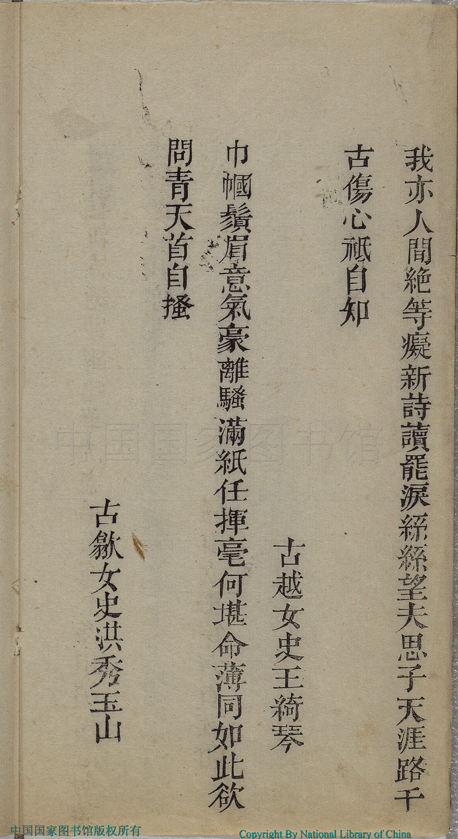 我亦人間絶等癡新詩讀罷淚絲絲望夫思子天涯路千
古傷心祗自知
古越女史王綺琴
巾幗鬚眉意氣豪離騷滿紙任揮毫何堪命薄同如此欲
問青天首自搔
古歙女史洪秀玉山
中国国家图书馆
中国国家图书馆版权所有
Copyright By National Library of China